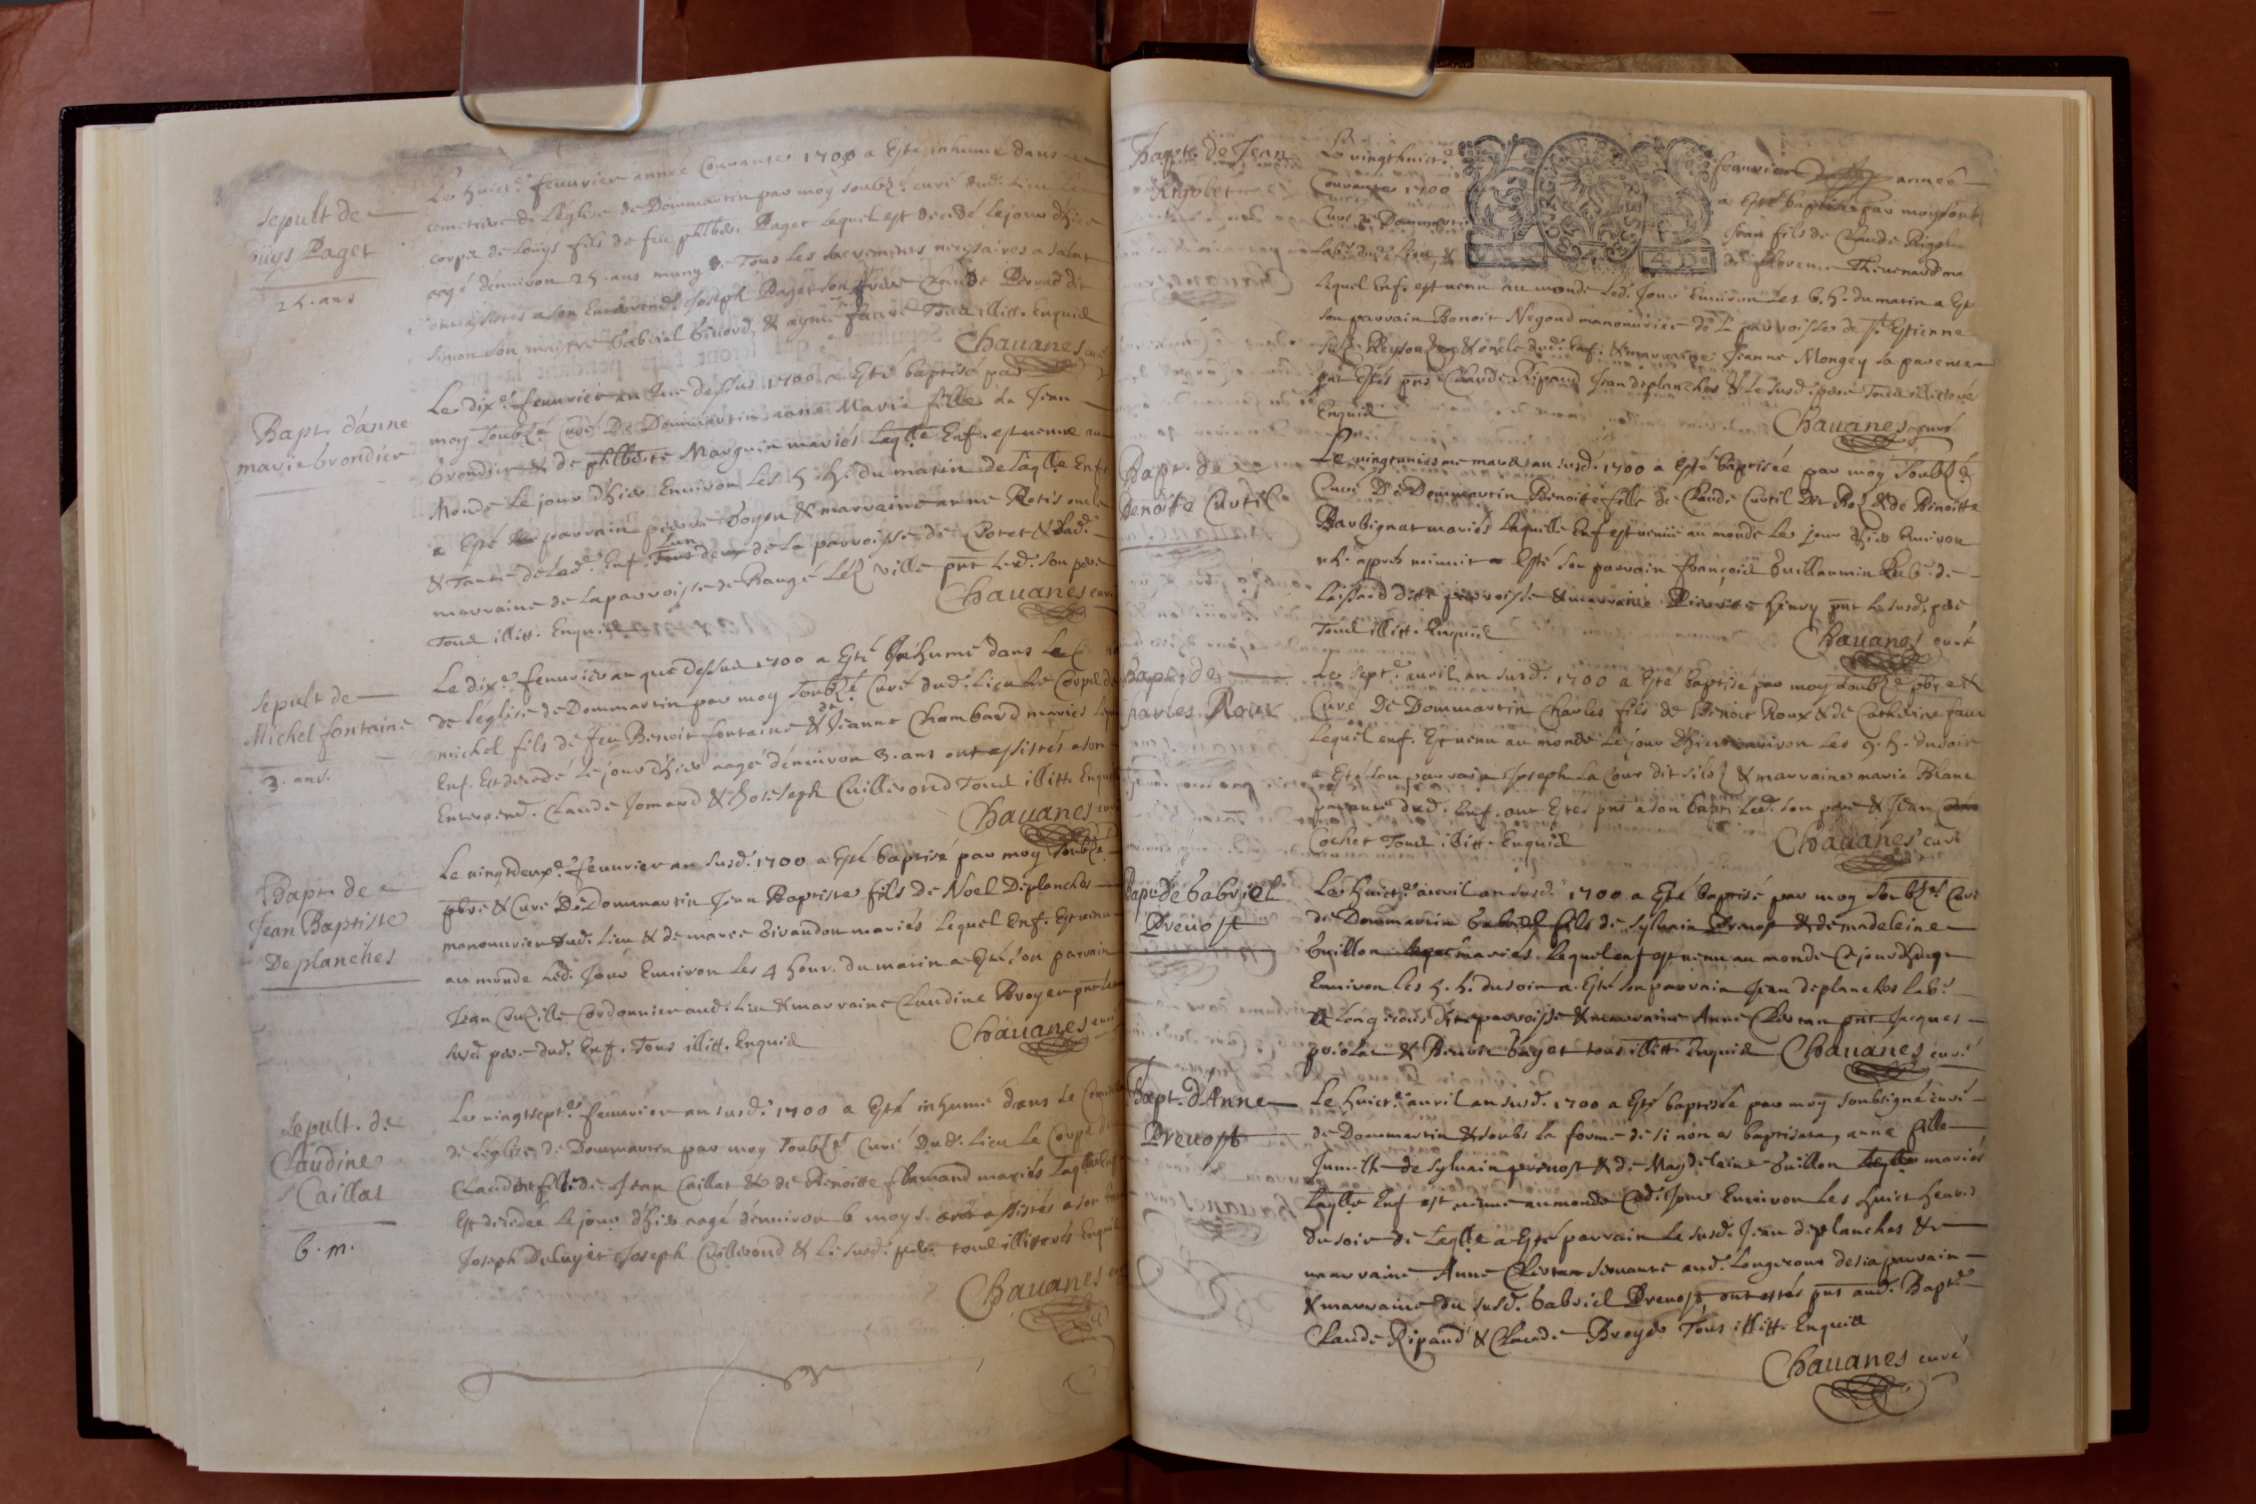 sepult de
Loüys Paget
25. ans
Le huict.e feuurier année Courante 1700 a Esté inhumé dans le
cemetiere de l'église de Dommartin par moy soubz.é curé dud. Lieu Le
corps de Loüys fils de feu philb. Paget Lequel est decedé le jour d'hier
aagé d'enuiron 25. ans muny de Tous les sacrements necessaires a salut
ont assistés a son Enterrem.t Joseph Paget son frere Claude
simon son maistre Gabriel & Tous illitt. Enquis
Chauanes curé
Bapt. d'anne
marie brondier
Le dix.e feuurier an que dessus 1700 a Esté baptisé par
moy soubz.é Curé De Dommartin anne Marie fille de Jean
brondier & de philberte Marguin mariés Laqlle Enf. est venue au
Monde le jour d'hier Enuiron Les 5. h. du matin de laqlle Enf.
a Esté parrain pierre & marraine anne Rotis oncle
& Tante de Lad. Enf. de la parroisse de & Lad.
marraine de la parroisse de Baugé Léz ville pnt Led. son pere
Tous illitt. Enquis
Chauanes curé
sepult de
Michel fontaine
3. ans.
Le dix.e feuurier an que dessus 1700 a Esté Inhumé dans Le
de l'église de Dommartin par moy soubz.é Curé dud. Lieu Le Corps de
michel fils de feu Benoit fontaine & de Jeanne Chambard mariés
Enf. Est decedé le jour d'hier aagé d'enuiron 3. ans ont assistés a son
Enterrem.t Claude Jomard & Joseph Cuillerond Tous illitt. Enquis
Chauanes curé
Bapt. de
Jean Baptiste
Deplanches
Le vingtdeux.e feuurier an susd. 1700 a Esté baptisé par moy soubz.é
pbre & Curé De Dommartin Jean Baptiste fils de Noel Deplanches
manouurier dud. Lieu & de marie Giraudon mariés Lequel Enf. Est venu
au monde Led. Jour Enuiron les 4 heur. du matin a Esté son parrain
Jean Cordonnier aud. Lieu & marraine Claudine Broyer pnt Le
susd. pere dud. Enf. Tous illitt. Enquis
Chauanes curé
sepult. de
Claudine
Caillat
6. m.
Le vingtsept.e feuurier an susd. 1700 a Esté inhumé dans le
de L'église de Dommartin par moy soubz.é Curé Dud. Lieu Le Corps de
Claudine fille de Jean Caillat & de Benoitte flamand mariés Laqlle Enf.
Est decedée Le jour d'hier aagé d'enuiron 6 moys. ont assistés a son
Joseph Joseph Cuillerond & Le susd. pere tous illiterés Enquis
Chauanes
Bapt. de Jean
Rigolet
Le vingthuict.e feurier année
Courante 1700 a Esté baptisé par moy soub
Curé de Dommartin Jean fils de Claude Rigolet
Lab. dud. Lieu & de
Lequel Enf. est venu au monde Led. Jour Enuiron Les 6. h. du matin a Esté
son parrain Benoit Negoud manouurier de la parroisse de st Estienne
sur Reysouze & oncle dud. Enf. & marraine Jeanne Mongey sa parente
ont Estés pnts Claude Ripaud Jean deplanches & Le susd. pere Tous illiteré
Enquis
Chauanes curé
Bapt. de
Benoite Curtil
Le vingtuniesme mars an susd. 1700 a Esté baptisée par moy soubz.é
Curé De Dommartin Benoitte fille de Claude Curtil & de Benoitte
Barbignat mariés Laquelle Enf est venüe au monde Le jour d'hier Enuiron
h. apprés minuit a Esté son parrain françois Guillaumin Lab. de
ditte parroisse & marraine Pierrette henry pnt Le susd. pere
Tous illitt. Enquis
Chauanes curé
Bapt. de
charles Roux
Le sept.e auril an susd. 1700 a Esté baptisé par moy soubz.é pbre &
Curé De Dommartin Charles fils de Benoit Roux & de Catherine faure
Lequel enf. Est venu au monde Le jour d'hier enuiron Les 9. h. du soir
a Esté son parrain Joseph La Cour dit & marraine marie Blanc
parante dud. Enf. ont Estés pnts a son bapt. Led. son pere & Jean
Cochet Tous illitt. Enquis
Chauanes curé
Bapt. de Gabriel
Preuost
Le huict.e auril an susd. 1700 a Esté baptisé par moy soubz.é Curé
de Dommartin Gabriel fils de syluain Preuost & de madeleine
Guillon mariés Lequel enf est venu au monde Cejourd'huy
Enuiron Les 5. h. du soir a Esté son parrain Jean deplanches Lab.
a Longeroux ditte parroisse & marraine Anne pnt Jacques
& Benoit tous illitt. Enquis Chauanes curé
Bapt. d'Anne
Preuost
Le huict.e auril an susd. 1700 a Esté baptisée par moy soubsigné curé
de Dommartin & soubs La forme de si non es baptisata, anne fille
Jumelle de syluain preuost & de Magdeleine Guillon mariés
Laqlle Enf est venue au monde Led. Jour Enuiron Les huict heures
du soir de Laqlle a Esté parrain Le susd. Jean deplanches &
marraine Anne seruante aud. Longeroux desia parrain
& marraine du susd. Gabriel Preuost, ont estés pnts aud. Bapt.
Claude Ripaud & Claude Broyer Tous illitt. Enquis
Chauanes curé